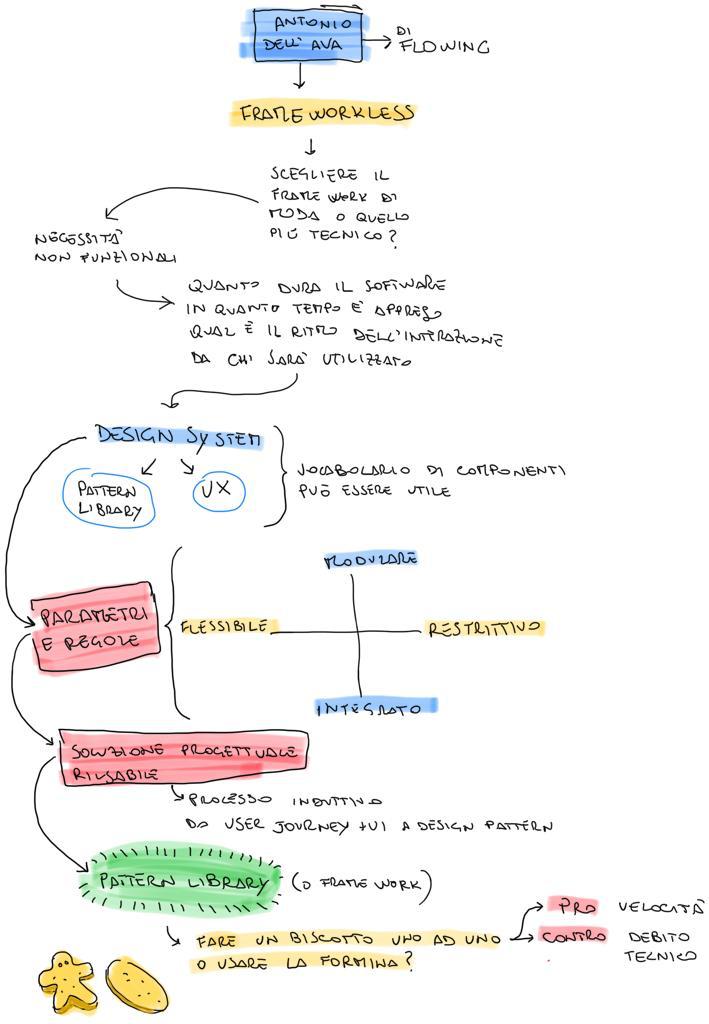 ANTONIO
DELL'AVA
DI
FLOWING
FRAMEWORKLESS
SCEGLIERE IL
FRAMEWORK DI
MODA O QUELLO
PIÙ TECNICO?
NECESSITÀ
NON FUNZIONALI
QUANTO DURA IL SOFTWARE
IN QUANTO TEMPO È APPRESO
QUAL È IL RITMO DELL'INTERAZIONE
DA CHI SARÀ UTILIZZATO
DESIGN SYSTEM
PATTERN
LIBRARY
UX
VOCABOLARIO DI COMPONENTI
PUÒ ESSERE UTILE
MODULARE
PARAMETRI
E REGOLE
FLESSIBILE
RESTRITTIVO
INTEGRATO
SOLUZIONE PROGETTUALE
RIUSABILE
PROCESSO INDUTTIVO
DA USER JOURNEY + UI A DESIGN PATTERN
PATTERN LIBRARY
(O FRAMEWORK)
FARE UN BISCOTTO UNO AD UNO
O USARE LA FORMINA?
PRO VELOCITÀ
CONTRO DEBITO
TECNICO